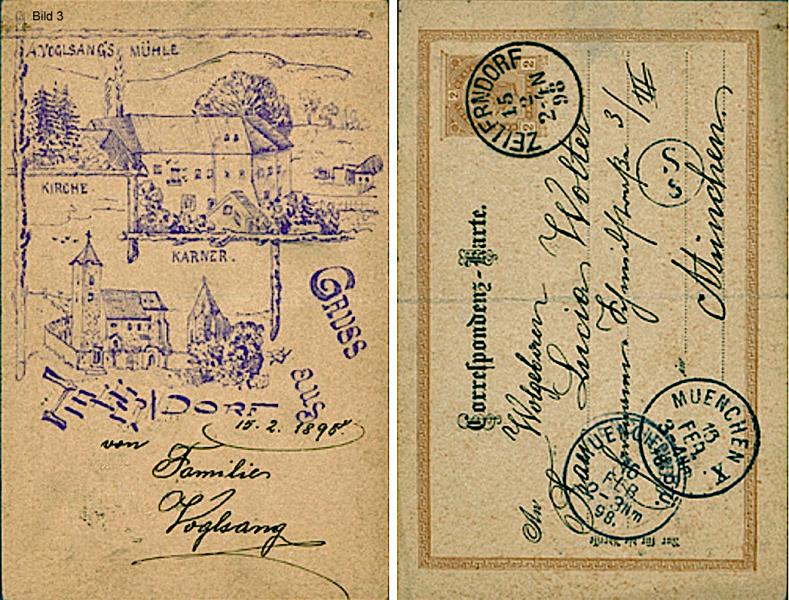 Bild 3
A. VOGLSANG'S MÜHLE
KIRCHE
KARNER.
GRUSS
aus
DORF
15. 2. 1898.
von
Familie
Voglsang
ZELLERNDORF
15
2
2-4N
98
2
2
2
Correspondenz-Karte.
An
Wolgeboren
Lucia Wolter
Schmidstraße 3/III
in
München
S.
S
MUENCHEN X.
FEB.
MUENCHEN
16
FEB.
2-3Nm
98.
Nur für die Adresse